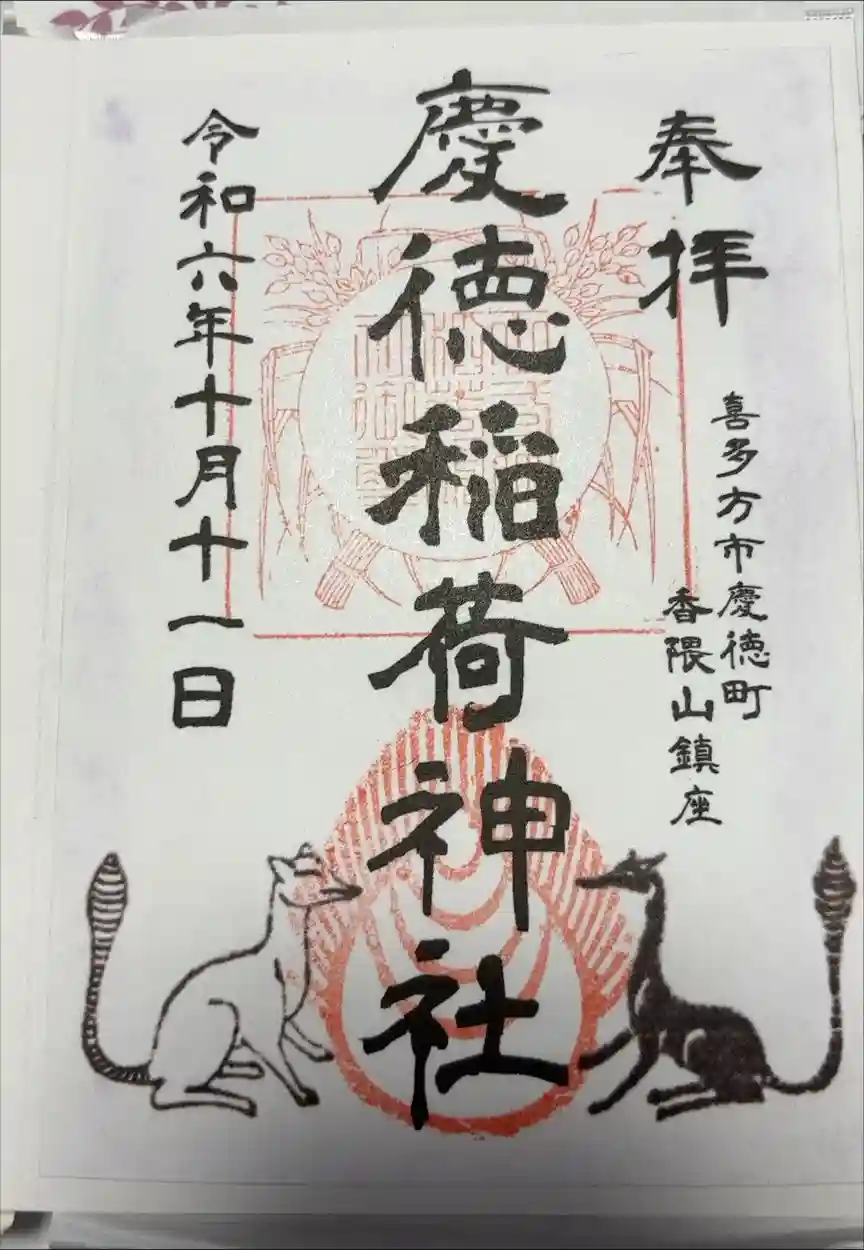 奉拝
喜多方市慶徳町
香隈山鎮座
慶徳稲荷神社
令和六年十月十一日